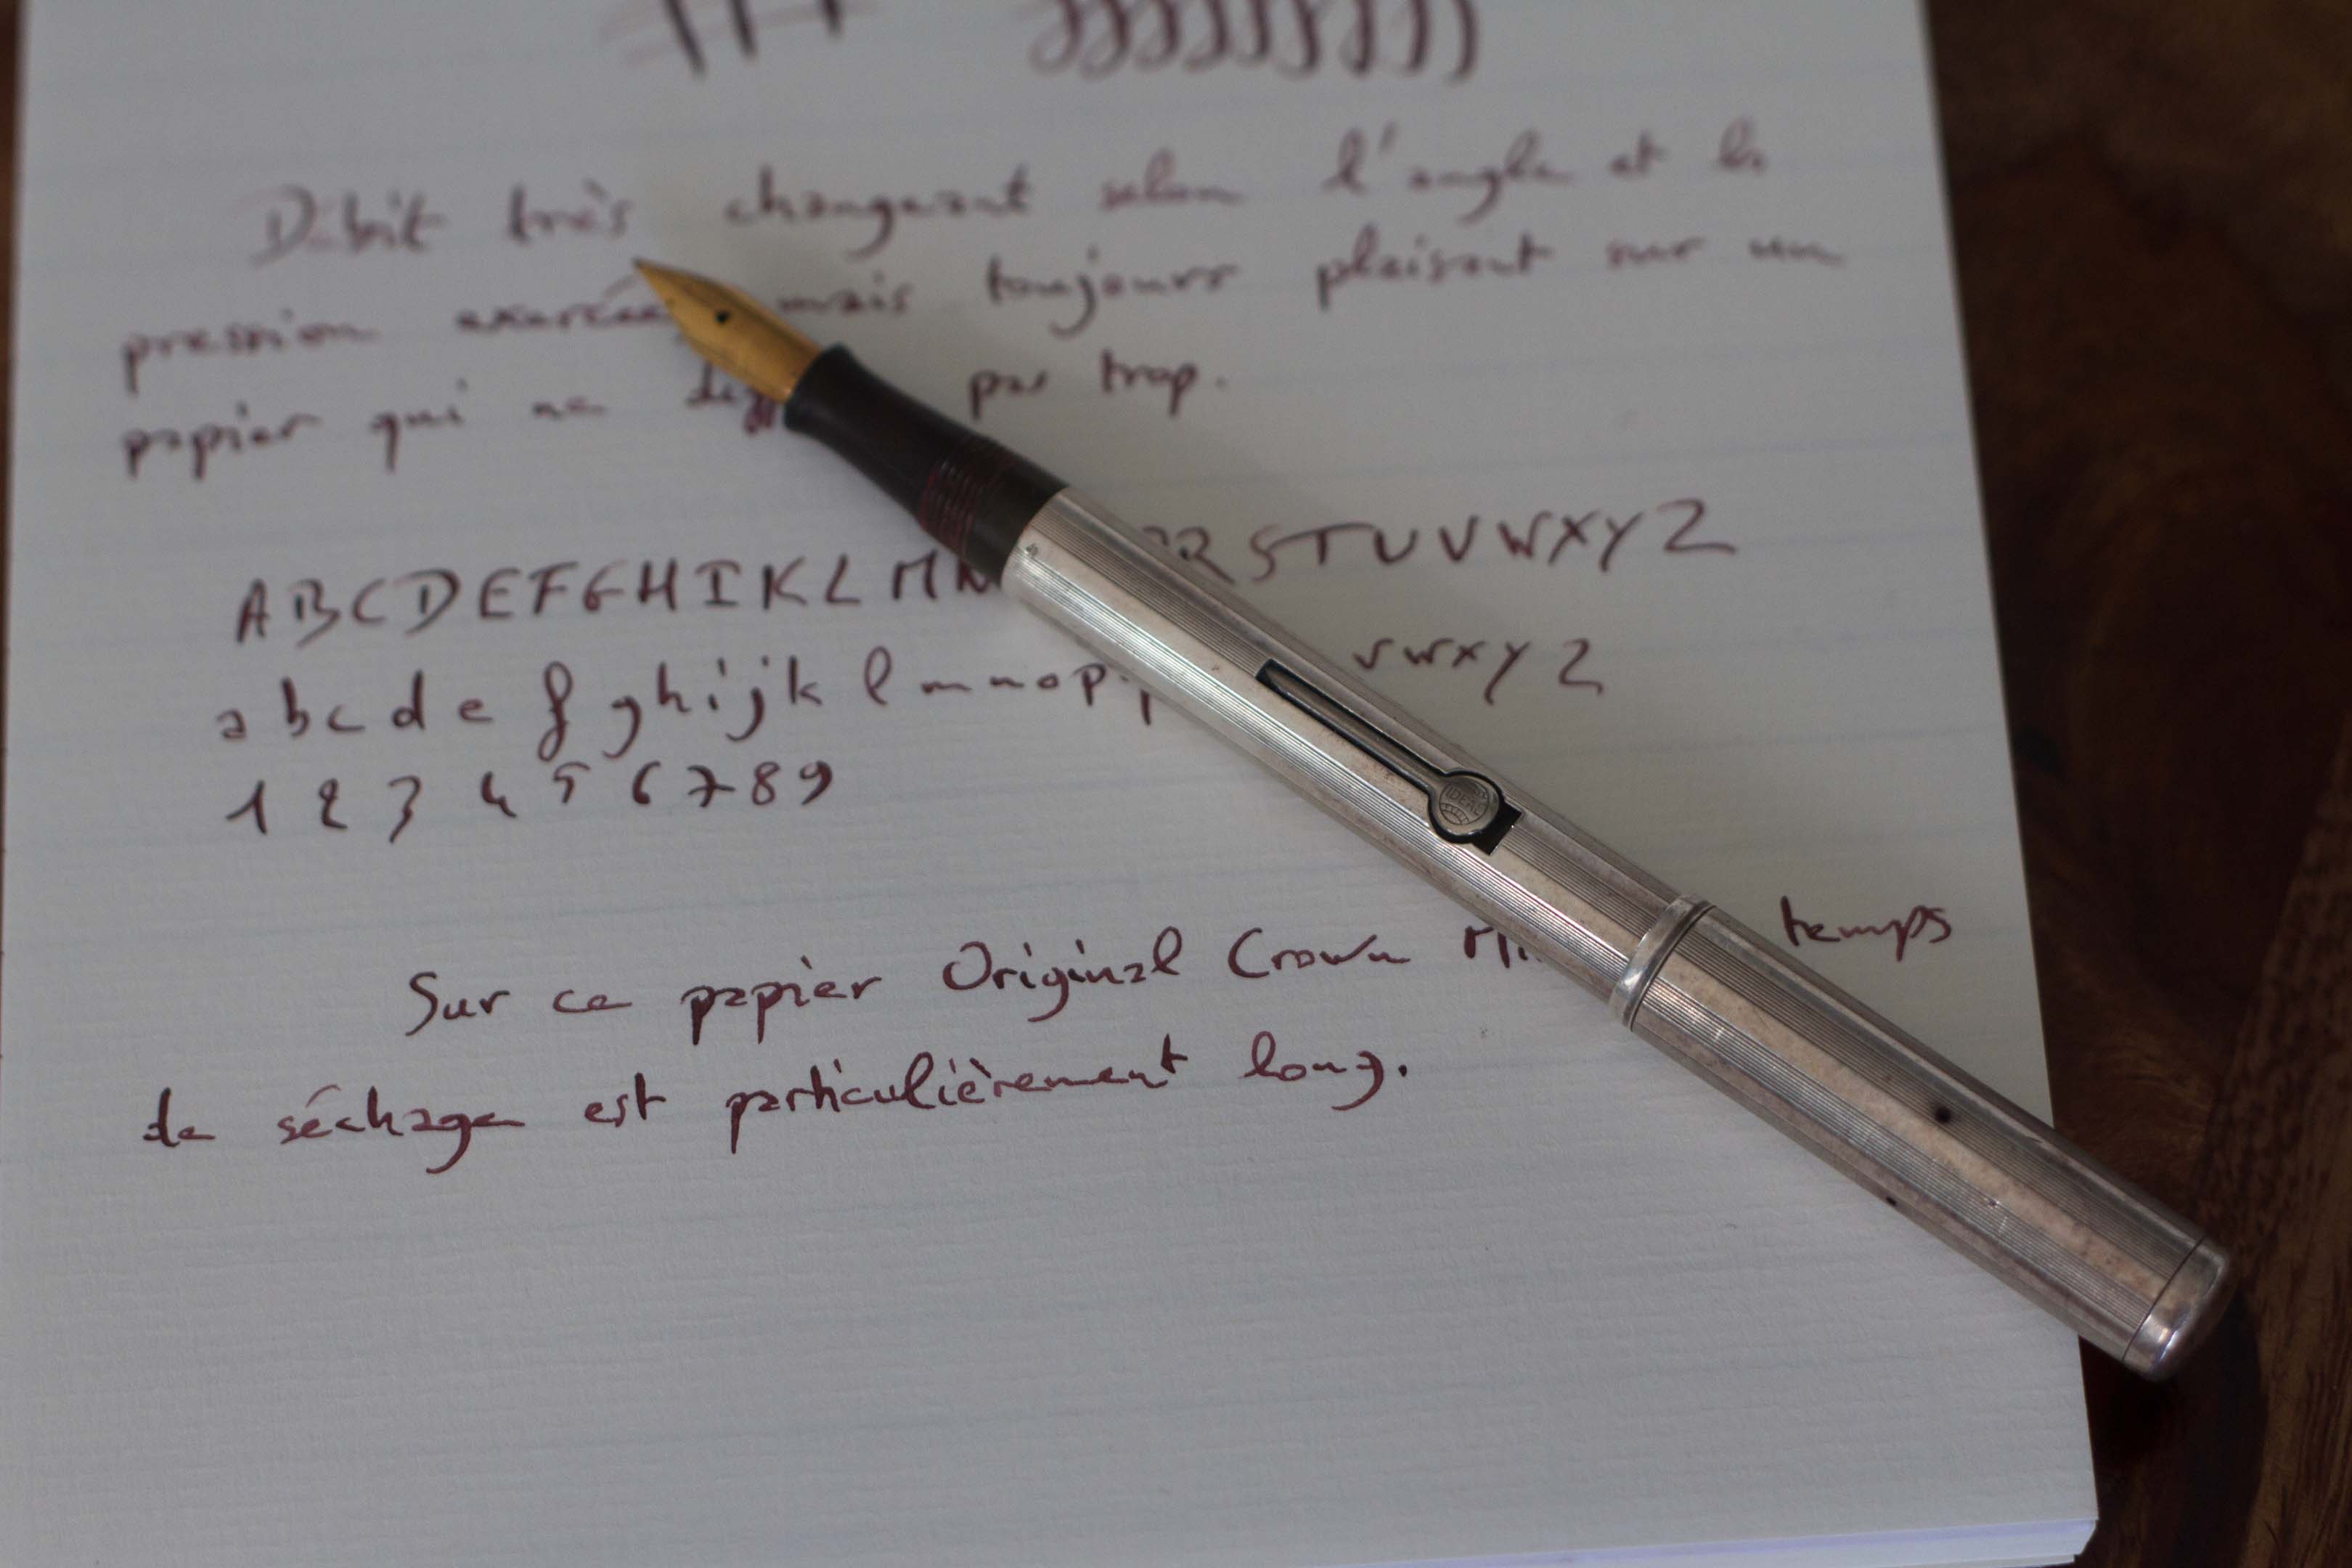 Débit très changeant selon l'angle et la
pression exercée mais toujours plaisant sur un
papier qui ne pas trop.
ABCDEFGHIKLMN RSTUVWXYZ
abcdefghijklmnop vwxyz
1 2 3 4 5 6 7 8 9
IDEAL
Sur ce papier Original Crown temps
de séchage est particulièrement long.